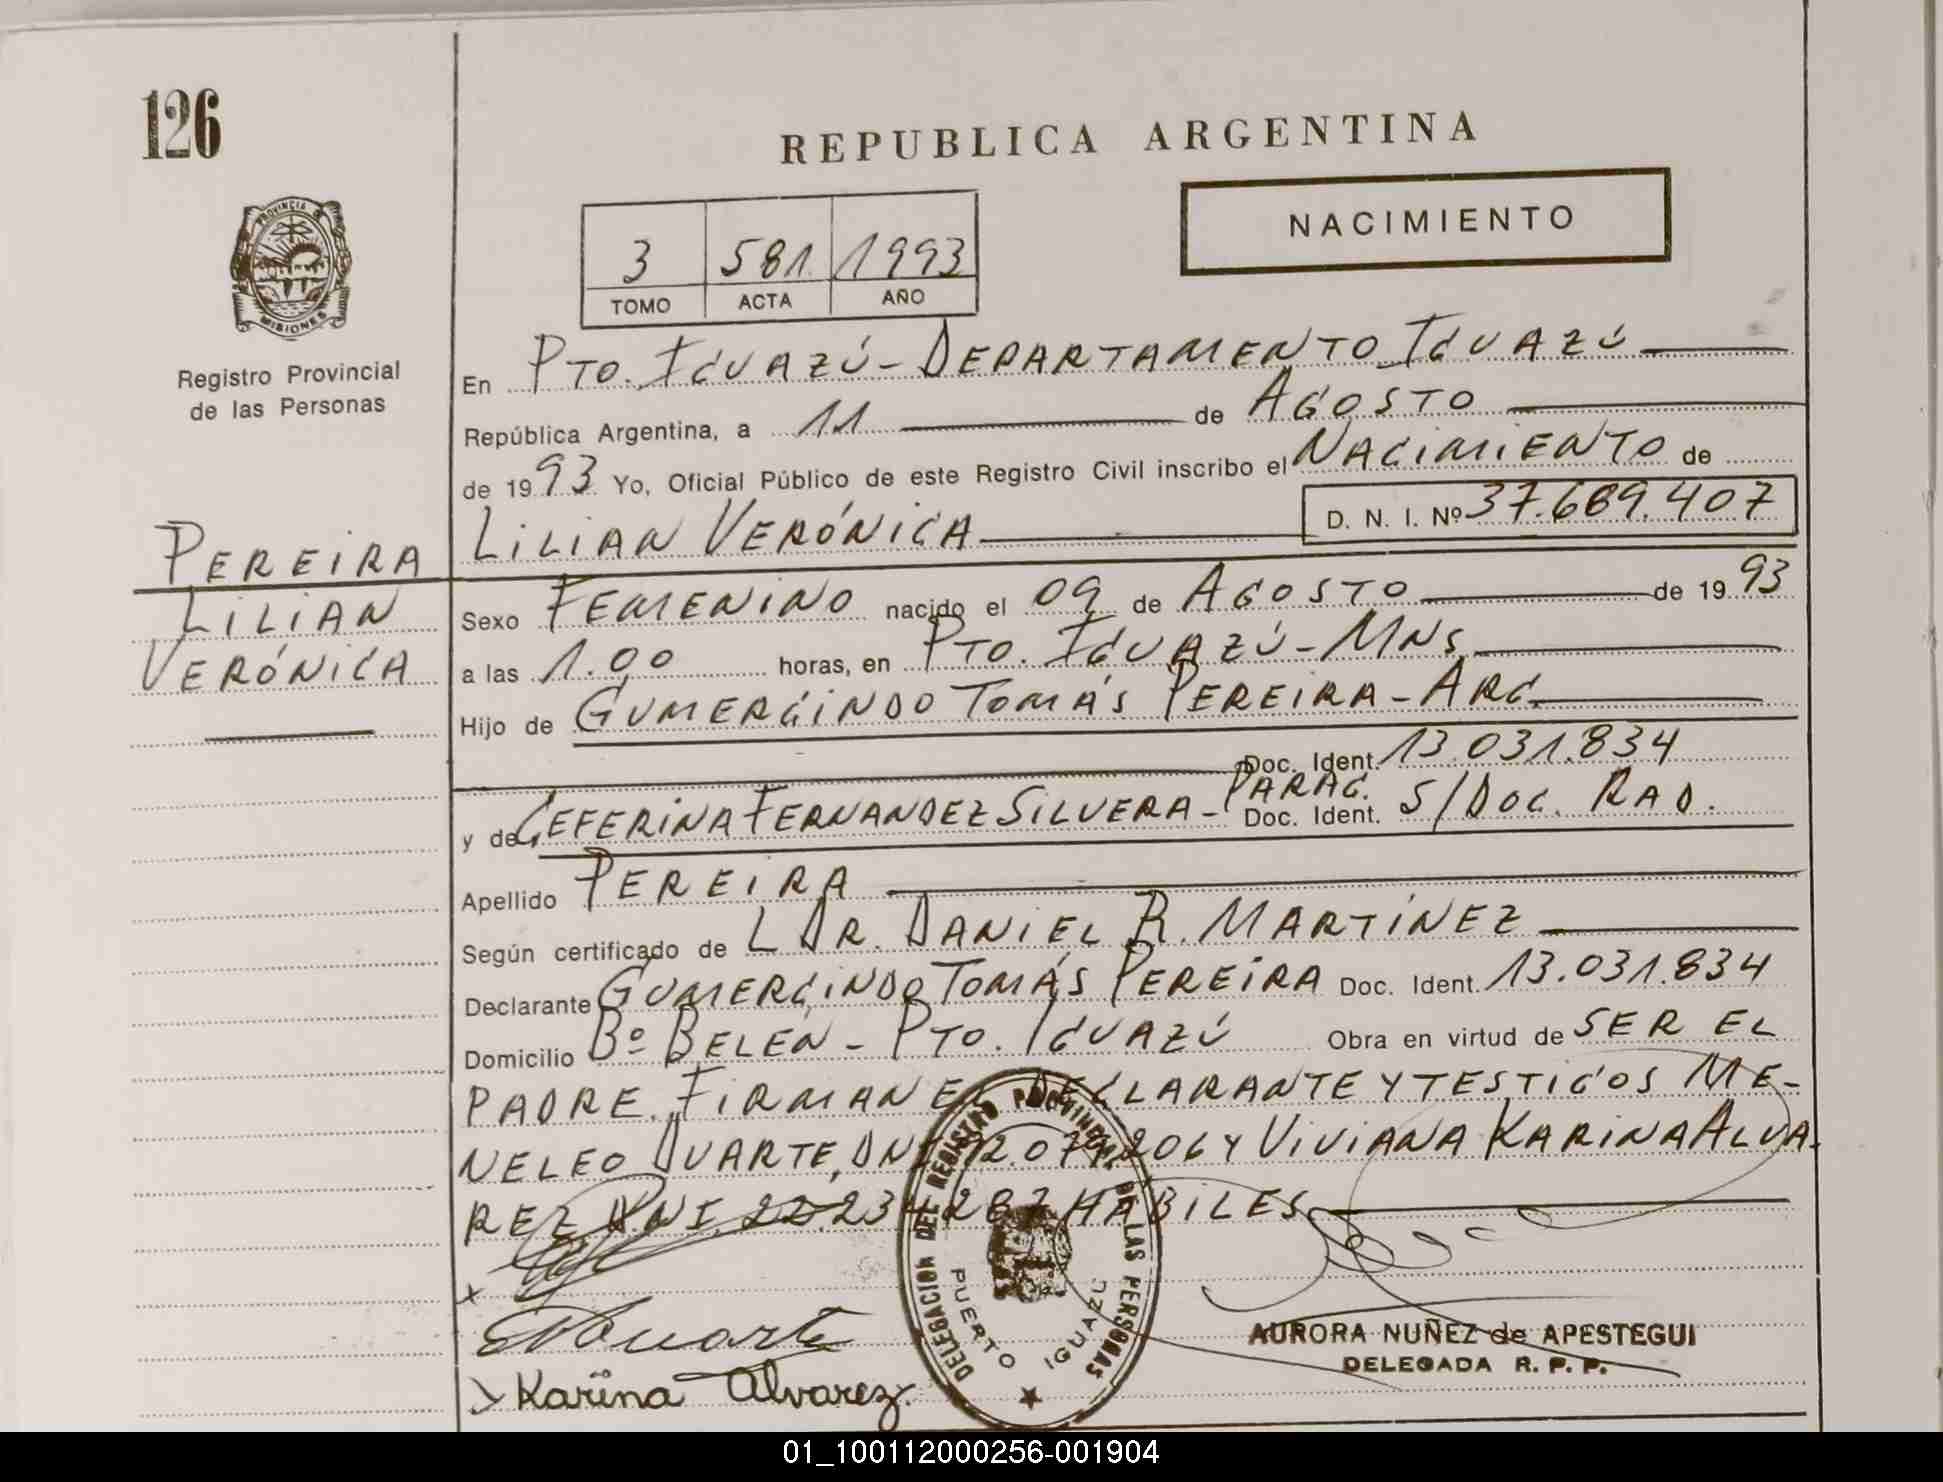 126
REPUBLICA ARGENTINA
NACIMIENTO
3 581 1993
TOMO ACTA AÑO
PROVINCIA DE
MISIONES
Registro Provincial
de las Personas
PEREIRA
LILIAN
VERÓNICA
En PTO. IGUAZÚ - DEPARTAMENTO IGUAZÚ
República Argentina, a 11 de AGOSTO
de 1993 Yo, Oficial Público de este Registro Civil inscribo el NACIMIENTO de
LILIAN VERÓNICA D. N. I. Nº 37.689.407
Sexo FEMENINO nacido el 09 de AGOSTO de 1993
a las 1.00 horas, en PTO. IGUAZÚ - MNS
Hijo de GUMERCINDO TOMÁS PEREIRA - ARG.
Doc. Ident. 13.031.834
y de CEFERINA FERNANDEZ SILVERA - PARAG. Doc. Ident. S/DOC. RAD.
Apellido PEREIRA
Según certificado de L DR. DANIEL R. MARTÍNEZ
Declarante GUMERCINDO TOMÁS PEREIRA Doc. Ident. 13.031.834
Domicilio Bº BELÉN - PTO. IGUAZÚ Obra en virtud de SER EL
PADRE. FIRMAN EL DECLARANTE Y TESTIGOS ME-
NELEO DUARTE, DNI 92.079.206 Y VIVIANA KARINA ALVA-
REZ DNI. 22.234.287 HÁBILES
x
Duarte
Karina Alvarez
DELEGACION DEL REGISTRO PROVINCIAL DE LAS PERSONAS
PUERTO IGUAZU
AURORA NUÑEZ de APESTEGUI
DELEGADA R. P. P.
01_100112000256-001904